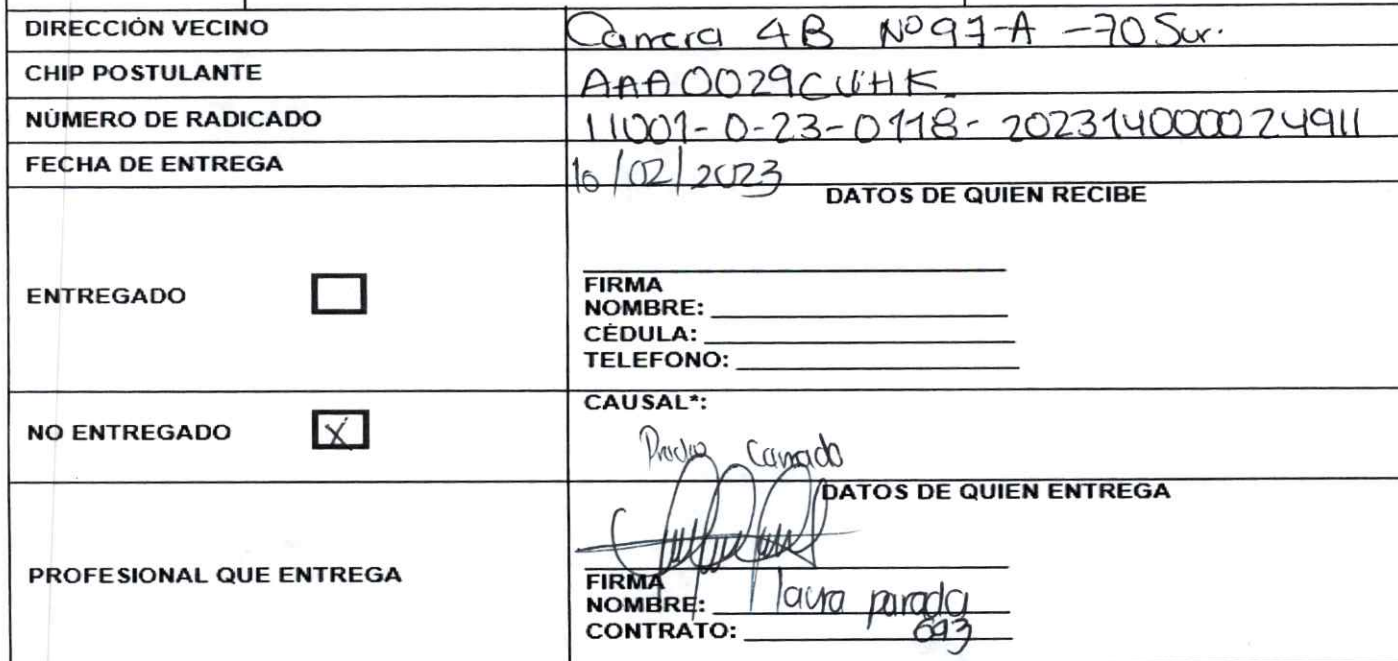 DIRECCIÓN VECINO Carrera 4B Nº 97-A -70 Sur.
CHIP POSTULANTE AAA0029CUHK
NÚMERO DE RADICADO 11001-0-23-0118-2023140000 24911
FECHA DE ENTREGA 16/02/2023
DATOS DE QUIEN RECIBE
ENTREGADO
FIRMA
NOMBRE:
CÉDULA:
TELEFONO:
CAUSAL*:
NO ENTREGADO X
Predio Cerrado
DATOS DE QUIEN ENTREGA
PROFESIONAL QUE ENTREGA
FIRMA
NOMBRE: laura parada
CONTRATO: 693